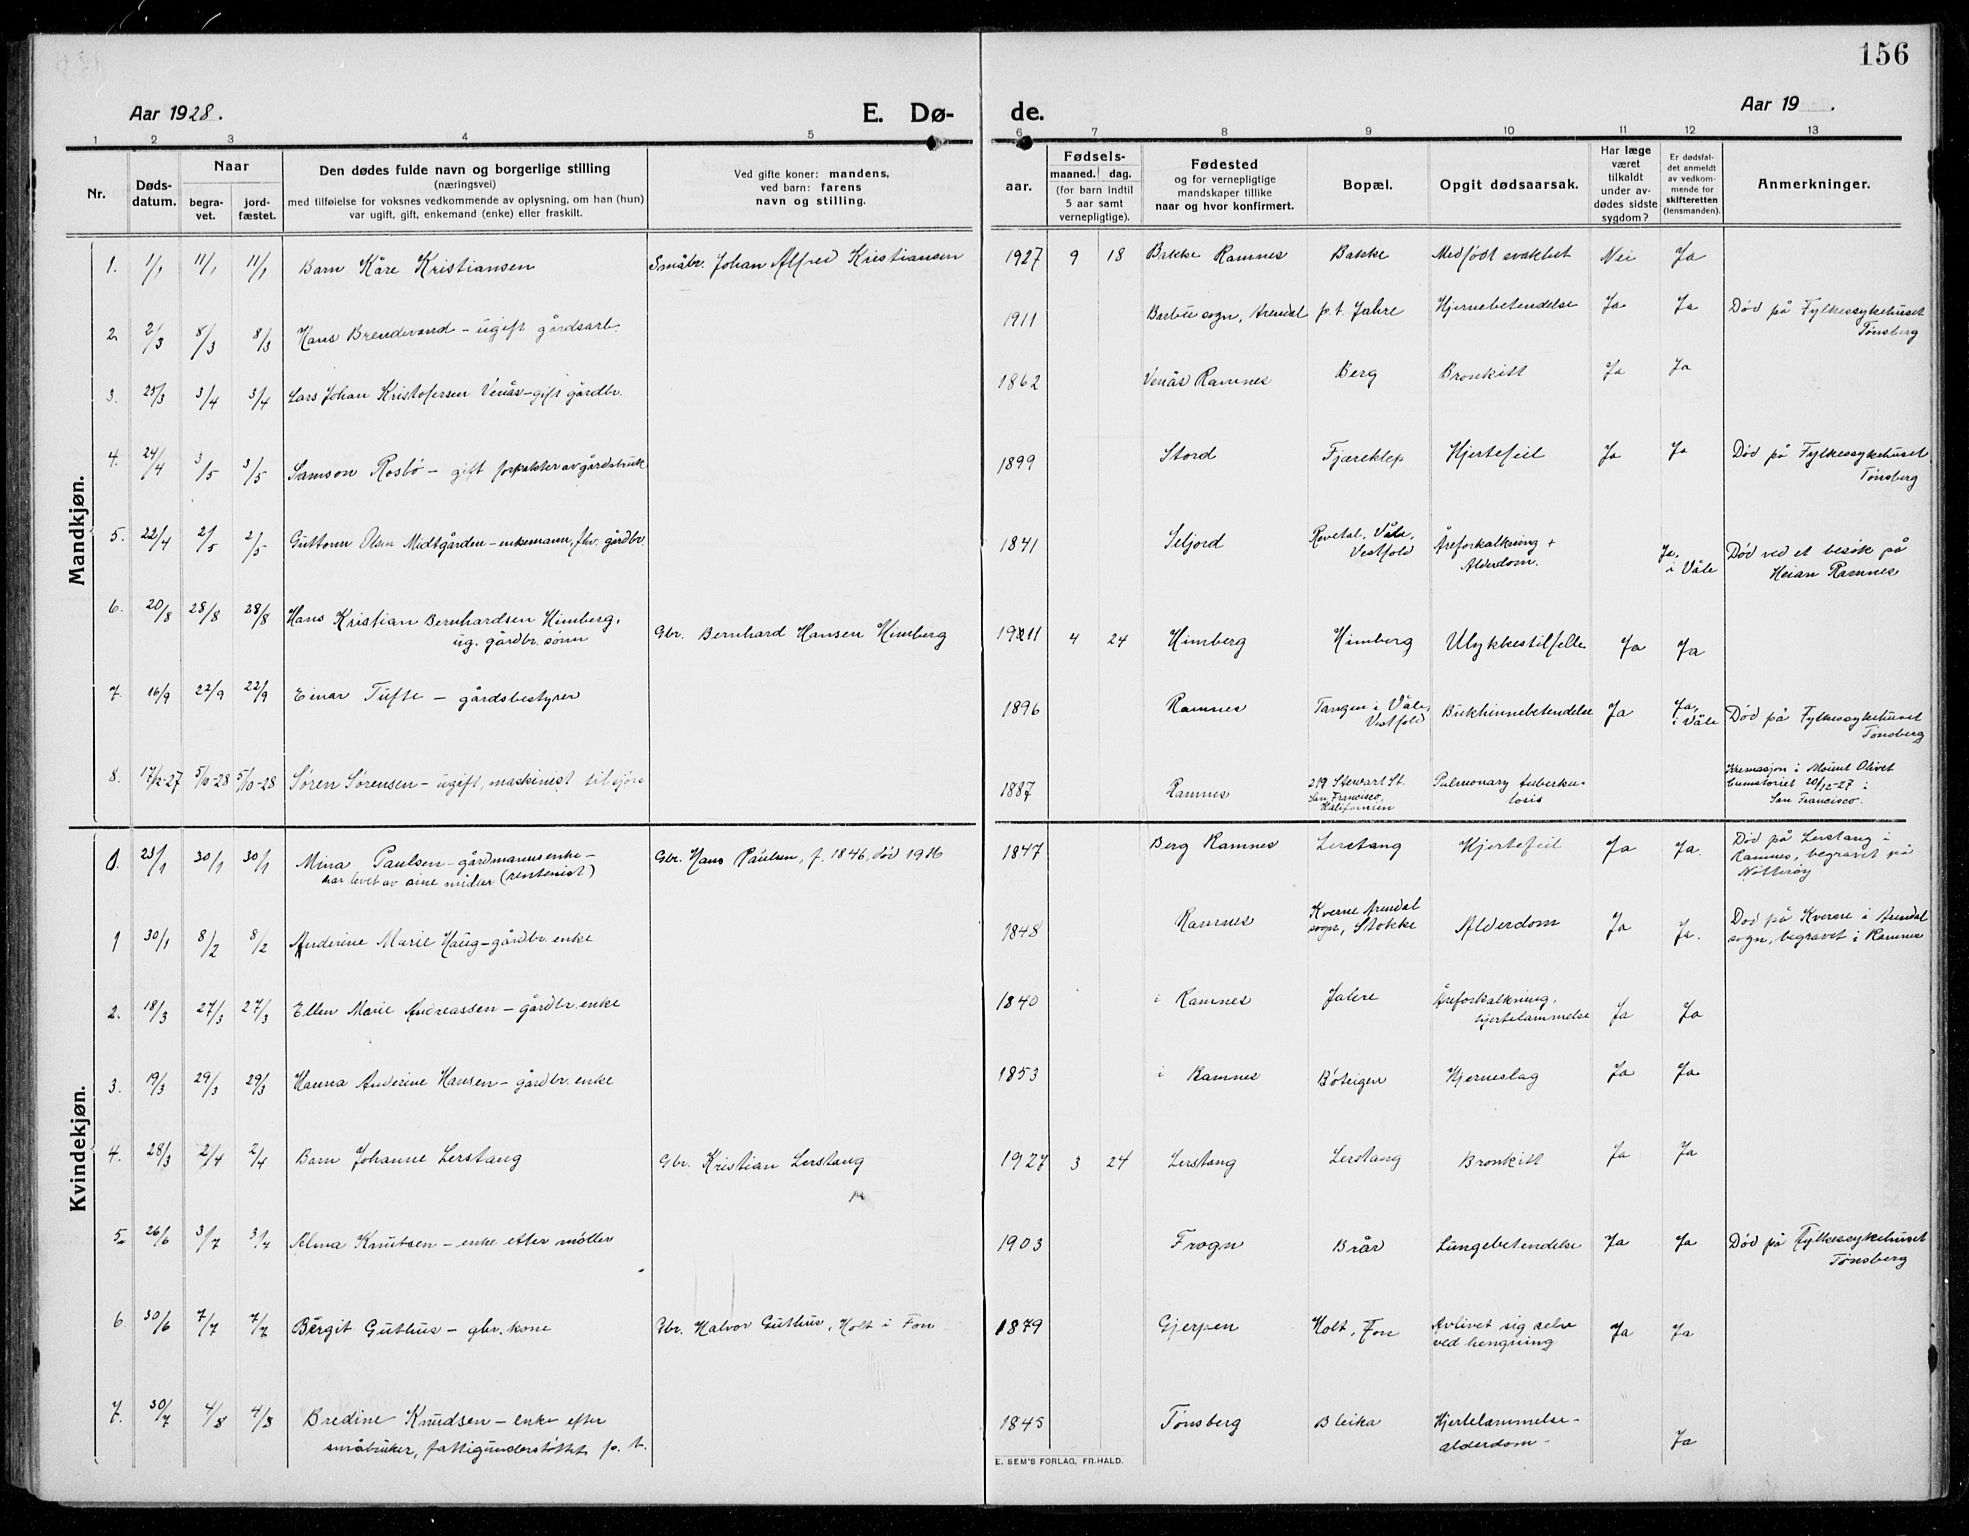 156
Aar 1928. E. Dø- de. Aar 19 .
1 2 3 4 5 6 7 8 9 10 11 12 13
Nr.
Døds-
datum.
Naar
begra-
vet.
jord-
fæstet.
Den dødes fulde navn og borgerlige stilling
(næringsvei)
med tilføielse for voksnes vedkommende av oplysning, om han (hun)
var ugift, gift, enkemand (enke) eller fraskilt.
Ved gifte koner: mandens,
ved barn: farens
navn og stilling.
aar.
Fødsels-
maaned. dag.
(for barn indtil
5 aar samt
vernepligtige).
Fødested
og for vernepligtige
mandskaper tillike
naar og hvor konfirmert.
Bopæl.
Opgit dødsaarsak.
Har læge
været
tilkaldt
under av-
dødes sidste
sygdom?
Er dødsfal-
det anmeldt
av vedkom-
mende for
skifteretten
(lensmanden).
Anmerkninger.
Mandkjøn.
1. 1/1 11/1 11/1 Barn Kåre Kristiansen Småbr. Johan Alfred Kristiansen 1927 9 18 Bakke Ramnes Bakke Medfødt svakhet Nei Ja
2 2/3 8/3 8/3 Hans Brendevand - ugift gårdsarb. 1911 Barbu sogn, Arendal p.t. Jahre Hjernebetendelse Ja Ja Død på Fylkessykehuset
Tønsberg
3. 25/3 3/4 3/4 Lars Johan Kristofersen Venås - gift gårdbr. 1862 Venås Ramnes Berg Bronkitt Ja Ja
4. 24/4 3/5 3/5 Samson Rosbø - gift forpakter av gårdsbruk 1899 Stord Fjæreklep Hjertefeil Ja Ja Død på Fylkessykehuset
Tønsberg
5. 22/4 2/5 2/5 Guttorm Olsen Midtgården - enkemann, fhv. gårdbr. 1841 Seljord Revetal, Våle,
Vestfold Åreforkalkning +
Alderdom. Ja,
i Våle Død ved et besøk på
Heian Ramnes
6. 20/8 28/8 28/8 Hans Kristian Bernhardsen Himberg,
ug. gårdbr. sønn Gbr. Bernhard Hansen Himberg 1911 4 24 Himberg Himberg Ulykkestilfelle Ja Ja
7. 16/9 22/9 22/9 Einar Tufte - gårdsbestyrer 1896 Ramnes Tangen i Våle,
Vestfold Bukhinnebetendelse Ja Ja,
i Våle Død på Fylkessykehuset
Tønsberg
8. 17/12-27 5/10-28 5/10-28 Søren Sørensen - ugift, maskinist tilsjøs 1887 Ramnes 219 Stewart St.
San Francisco,
Kalifornien Pulmonary tuberku-
losis Kremasjon i Mount Olivet
Crematoriet 20/12-27 i
San Francisco.
Kvindekjøn.
0. 23/1 30/1 30/1 Mina Paulsen - gårdmannsenke -
har levet av sine midler (rentenist) Gbr. Hans Paulsen, f. 1846, død 1916 1847 Berg Ramnes Lerstang Hjertefeil Ja Ja. Død på Lerstang i
Ramnes, begravet på
Nøtterøy
1 30/1 8/2 8/2 Anderine Marie Haug - gårdbr. enke 1848 Ramnes Kverne Arendal
sogn, Stokke Alderdom Ja Ja. Død på Kverne i Arendal
sogn, begravet i Ramnes
2. 18/3 27/3 27/3 Ellen Marie Andreassen - gårdbr. enke 1840 i Ramnes Jahre Åreforkalkning,
hjertelammelse Ja Ja
3. 19/3 29/3 29/3 Hanna Anderine Hansen - gårdbr. enke 1853 i Ramnes Bøteigen Hjerneslag Ja Ja
4. 28/3 2/4 2/4 Barn Johanne Lerstang Gbr. Kristian Lerstang 1927 3 24 Lerstang Lerstang Bronkitt Ja Ja
5. 26/6 3/7 3/7 Alma Knutsen - enke efter møller 1903 Frogn Brår Lungebetendelse Ja Ja Død på Fylkessykehuset
Tønsberg
6 30/6 7/7 7/7 Bergit Guthus - gbr. kone Gbr. Halvor Guthus, Holt i Fon 1879 Gjerpen Holt, Fon Avlivet sig selv
ved hengning Ja Ja
7. 30/7 4/8 4/8 Bredine Knudsen - enke efter
småbruker, fattigunderstøttet p. t. 1845 Tønsberg Bleika Hjertelammelse -
alderdom - Ja
E. SEM'S FORLAG, FR.HALD.